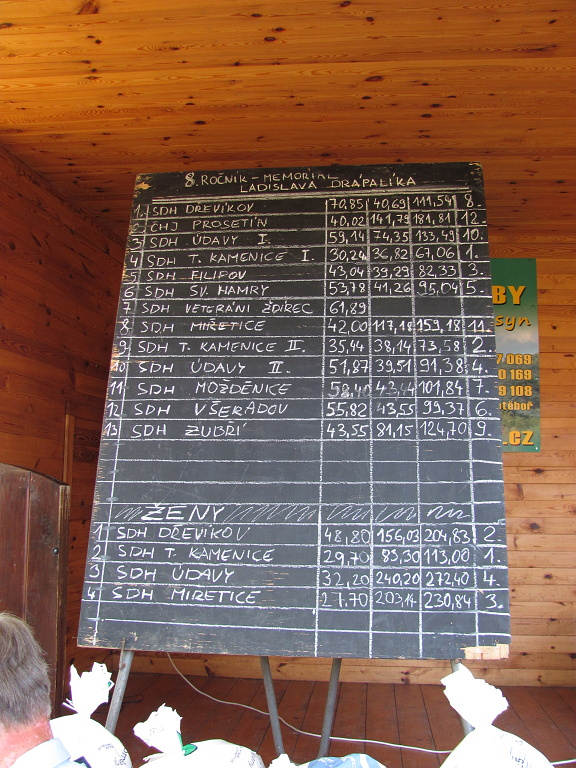 8. ROČNÍK - MEMORIAL
LADISLAVA DRÁPALÍKA
1. SDH DŘEVÍKOV 70,85 40,69 111,54 8.
2 CHJ PROSETÍN 40,02 141,79 181,81 12.
3 SDH ÚDAVY I. 59,14 74,35 133,49 10.
4 SDH T. KAMENICE I. 30,24 36,82 67,06 1.
5 SDH FILIPOV 43,04 39,29 82,33 3.
6 SDH SV. HAMRY 53,78 41,26 95,04 5.
7 SDH VETERÁNI ŽDÍREC 61,89
8 SDH MIŘETICE 42,00 117,18 159,18 11.
9 SDH T. KAMENICE II. 35,44 38,14 73,58 2.
10 SDH ÚDAVY II. 51,87 39,51 91,38 4.
11 SDH MOŽDĚNICE 101,84 7.
12 SDH VŠERADOV 55,82 43,55 99,37 6.
13 SDH ZUBŘÍ 43,55 81,15 124,70 9.
ŽENY
1 SDH DŘEVÍKOV 48,80 156,03 204,83 2.
2 SDH T. KAMENICE 29,70 83,30 113,00 1.
3 SDH ÚDAVY 32,20 240,20 272,40 4.
4 SDH MIRETICE 203,14 230,84 3.
BY
syn
7 069
0 169
9 108
těboř
.CZ